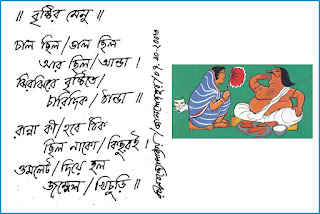 ॥ বৃষ্টির মেনু ॥
চাল ছিল/ডাল ছিল
আর ছিল/আন্ডা।
ঝিরঝিরে বৃষ্টিতে/
চারিদিক/ঠান্ডা॥
রান্না কী/হবে ঠিক
ছিল নাকো/কিছুরই।
ওমলেট/দিয়ে হল
জম্পেশ/খিচুড়ি॥